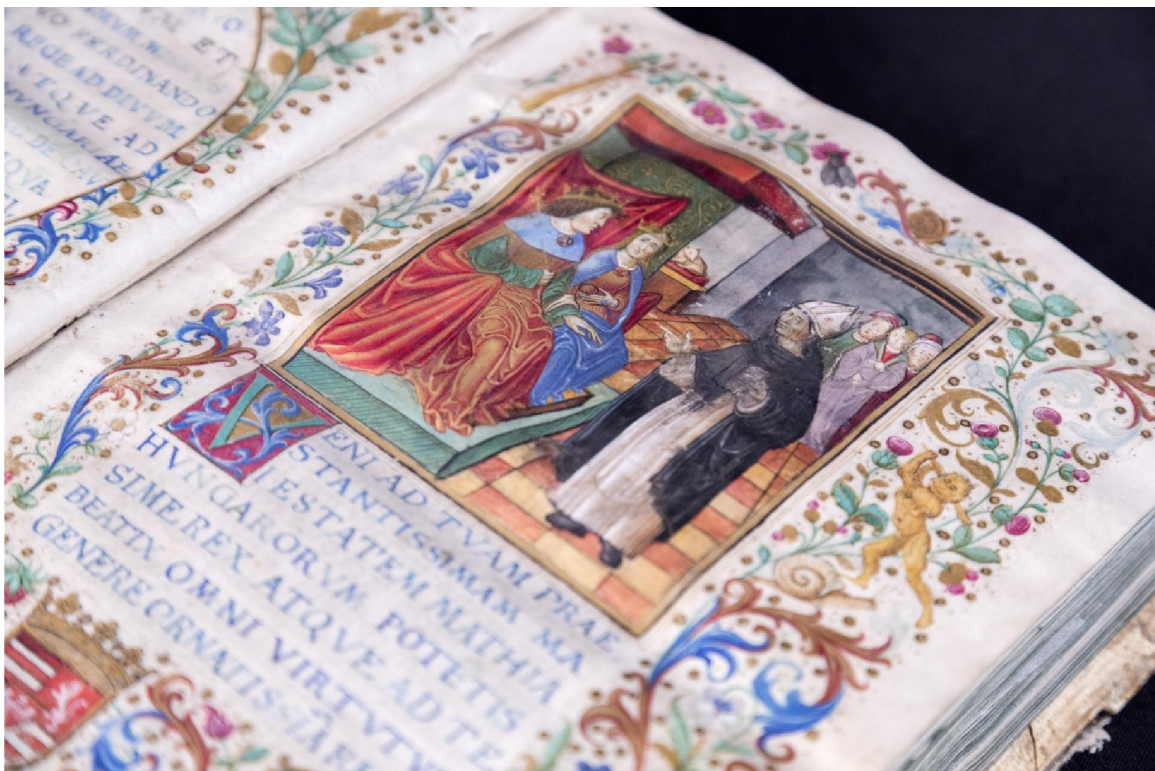 ET
FERDINANDO
REGE AD DIVVM
ATQVE AD
VNGARIAE
VENI AD TVAM PRAE
STANTISSIMAM MA
IESTATEM MATHIA
HVNGARORVM POTETIS
SIME REX ATQVE AD TE
BEATIX OMNI VIRTVTV
GENERE ORNATISSIA